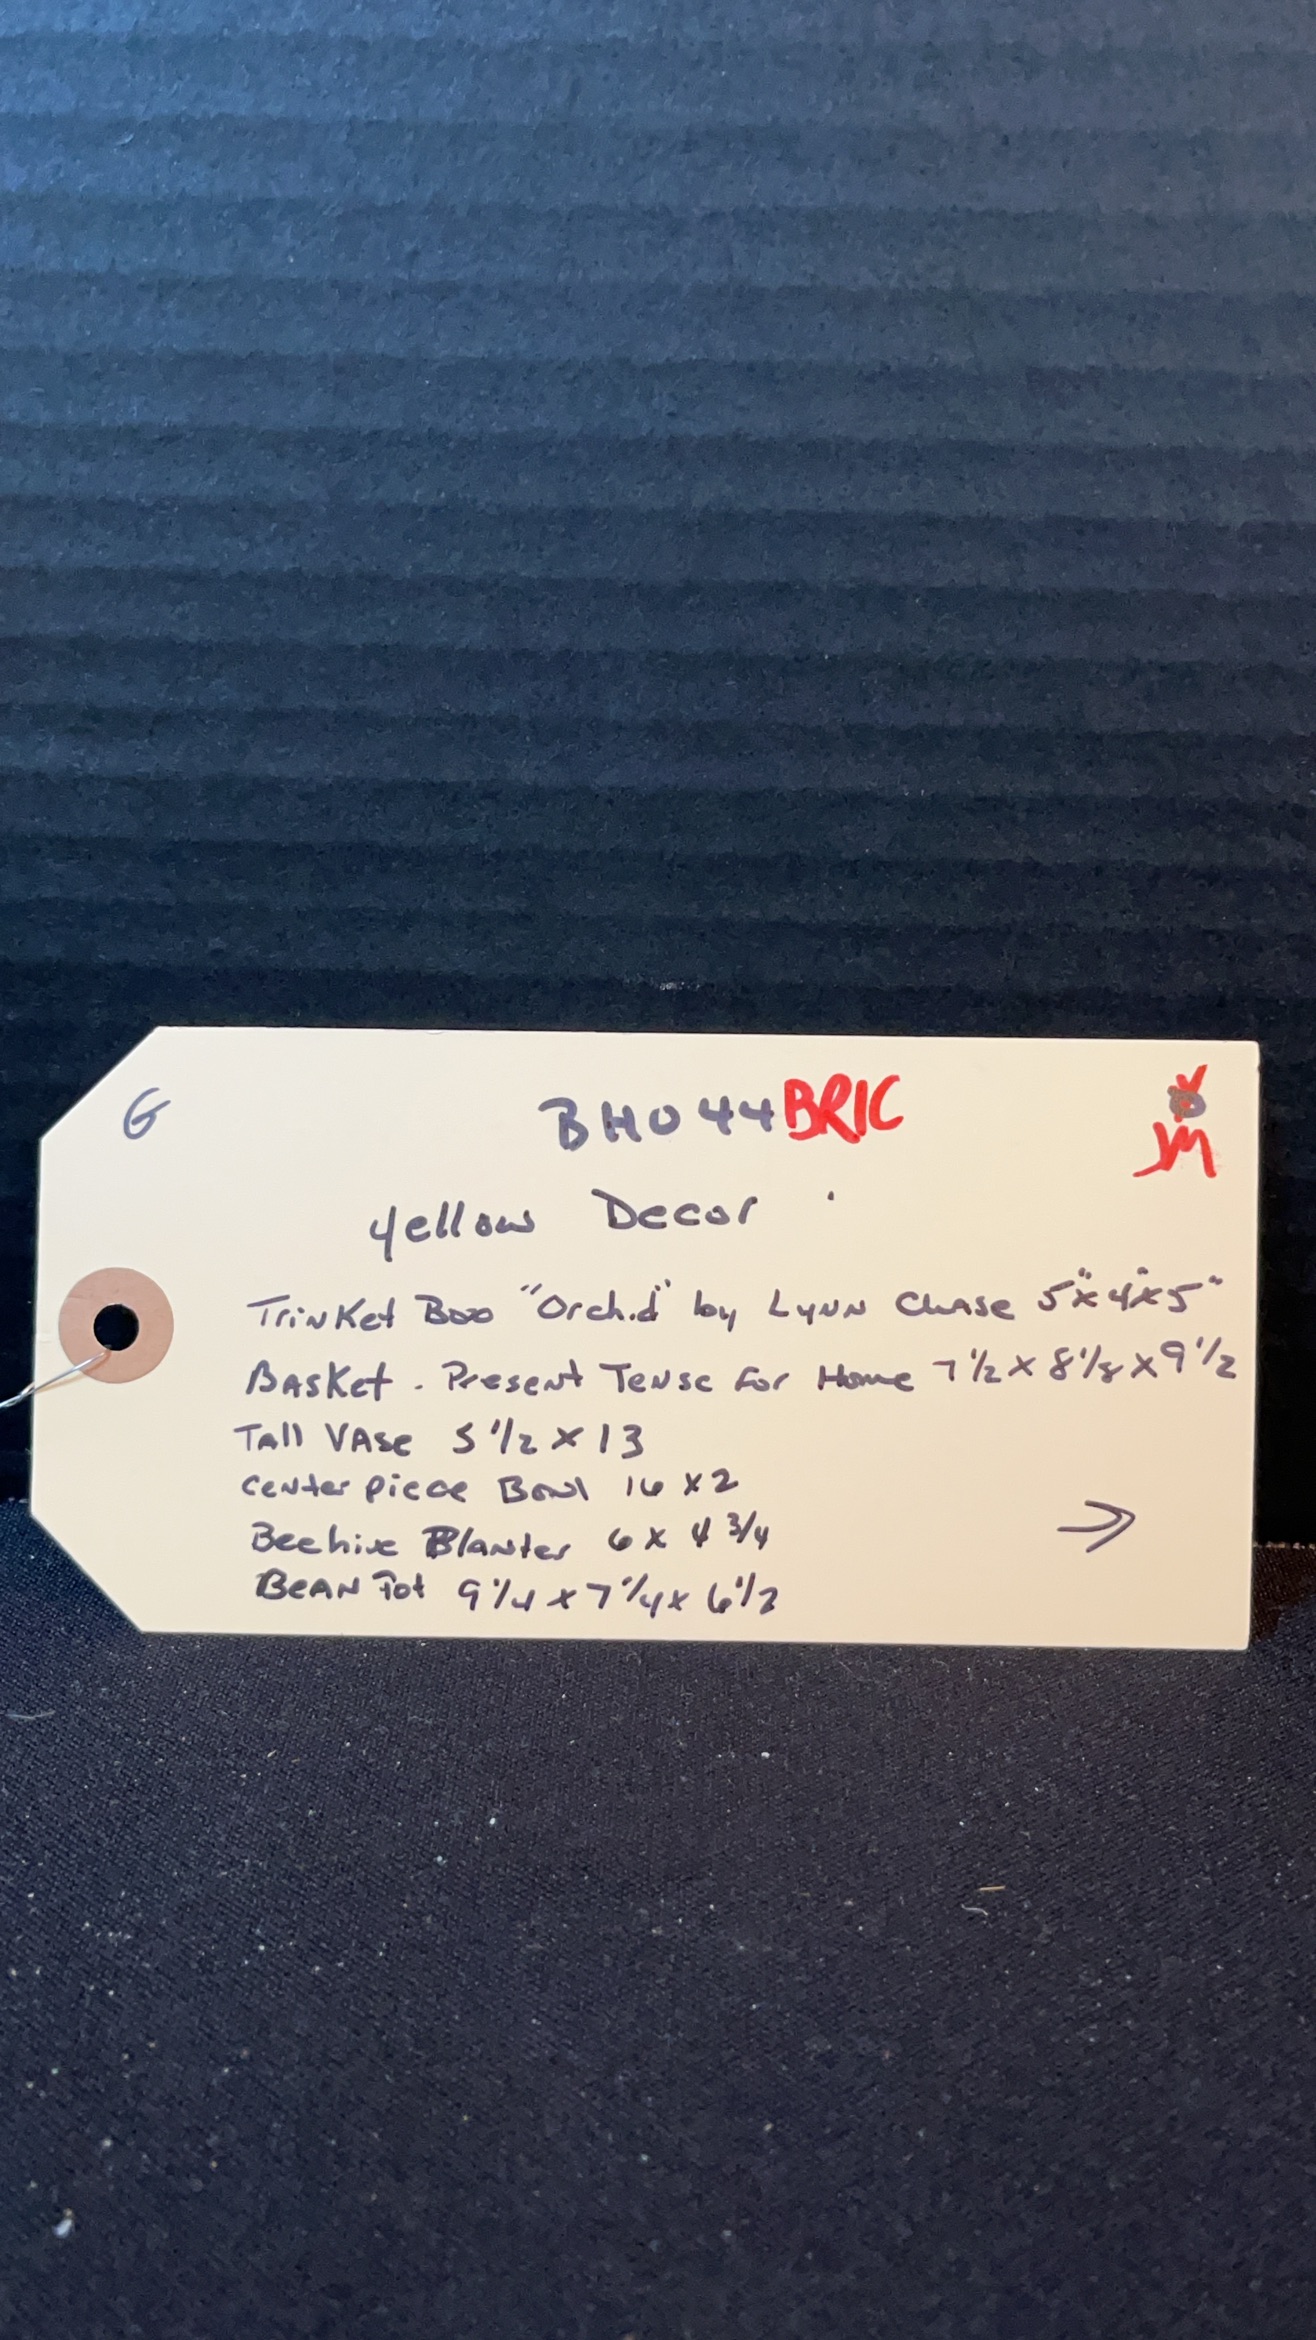 G
BH044BRIC
JM
yellow Decor
Trinket Box "Orchid" by Lynn Chase 5"x4"x5"
Basket - Present Tense For Home 7 1/2 x 8 1/8 x 9 1/2
Tall Vase 5 1/2 x 13
Center piece Bowl 16 x 2
Beehive Blanter 6 x 4 3/4
Bean Pot 9 1/4 x 7 1/4 x 6 1/2